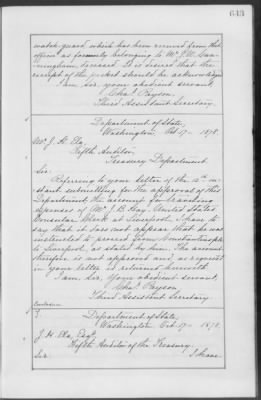 643
watch-guard which has been received from this
office as formerly belonging to Mr. J. W.
deceased. It is desired that the
receipt of the packet should be acknowledged.
I am, sir, your obedient servant,
Chas. Payson,
Third Assistant Secretary.
Department of State,
Washington Oct 17 - 1878.
J. H. Ela,
Fifth Auditor,
Treasury Department.
Sir:
Referring to your letter of the 12th in-
stant submitting for the approval of this
Department the account for traveling
expenses of Mr. J. B. Hay, United States
Consular Clerk at Liverpool, I have to
say that it does not appear that he was
instructed to proceed from Constantinople
to Liverpool, as stated by him. The account
therefore is not approved and, as requested
in your letter is returned herewith.
I am, Sir, Your obedient servant,
Chas. Payson
Third Assistant Secretary
Enclosure
Department of State,
Washington, Oct. 17 - 1878.
J. H. Ela, Esq.
Fifth Auditor of the Treasury.
Sir: I have